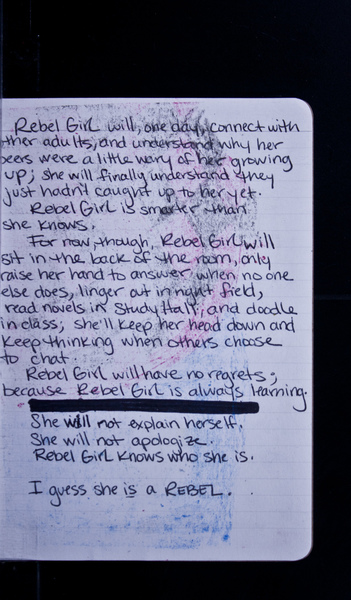 Rebel Girl will, one day, connect with
ther adults, and understand why her
peers were a little wary of her growing
up; she will finally understand they
just hadn't caught up to her yet.
Rebel Girl is smarter than
she knows.
For now, though, Rebel Girl will
sit in the back of the room, only
raise her hand to answer when no one
else does, linger out in right field,
read novels in Study Hall, and doodle
in class; she'll keep her head down and
keep thinking when others choose
to chat.
Rebel Girl will have no regrets;
because Rebel Girl is always learning.
She will not explain herself.
She will not apologize.
Rebel Girl knows who she is.
I guess she is a REBEL.